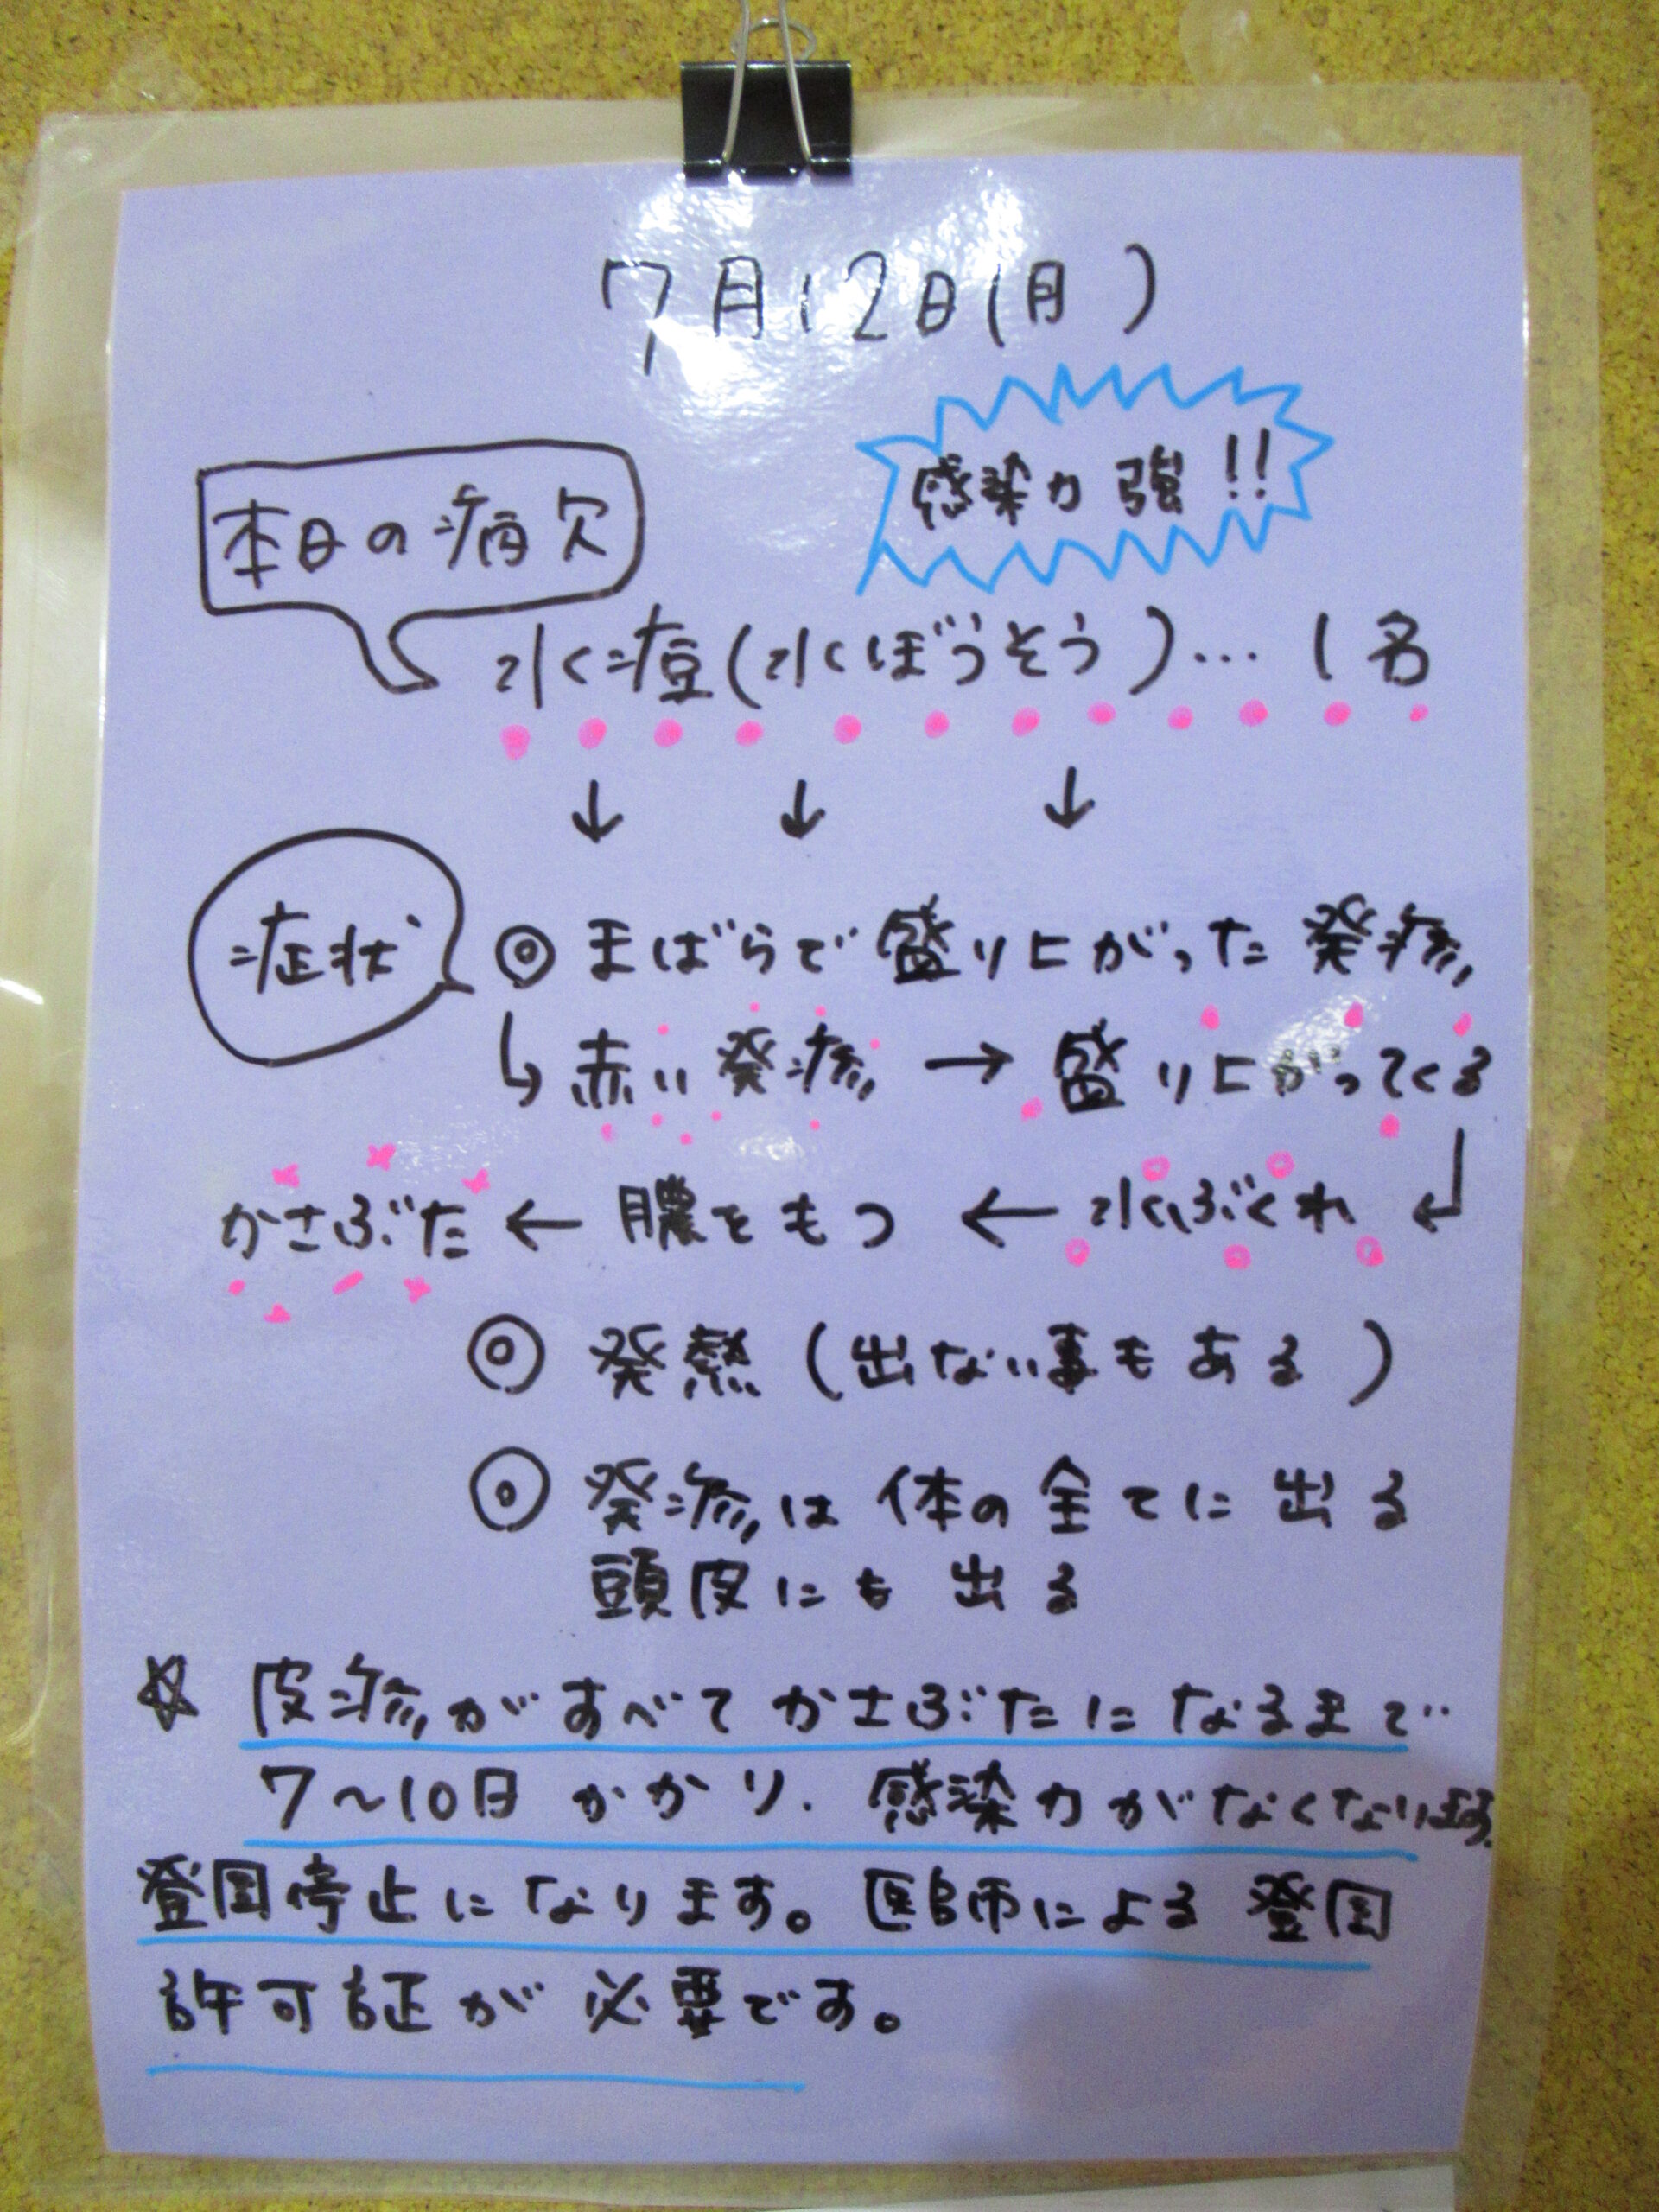 7月12日(月)
感染力強!!
本日の病欠
水痘(水ぼうそう)…1名
↓ ↓ ↓
症状
◎まばらで盛り上がった発疹
↳赤い発疹→盛り上がってくる
かさぶた←膿をもつ←水ぶくれ↲
◎発熱(出ない事もある)
◎発疹は体の全てに出る
頭皮にも出る
☆皮疹がすべてかさぶたになるまで
7~10日かかり、感染力がなくなります。
登園停止になります。医師による登園
許可証が必要です。